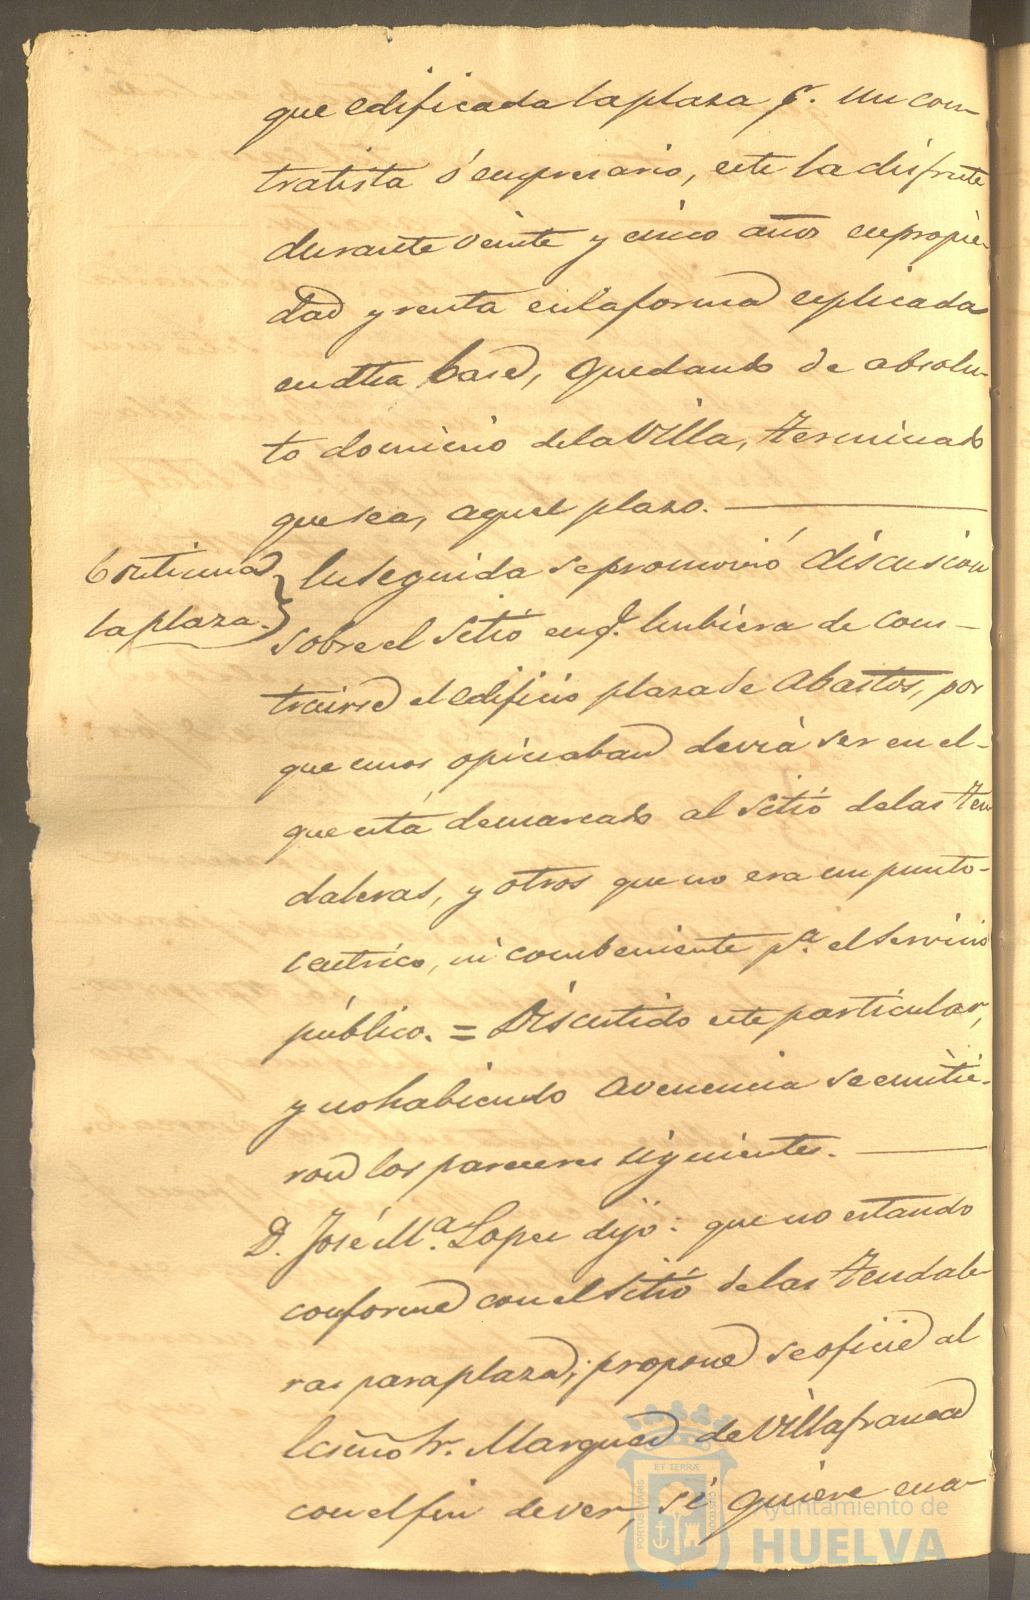 que edificada la plaza p.r un con-
tratista ó empresario, este la disfrute
durante veinte y cinco años en propie-
dad y renta en la forma esplicada
en dha base, quedando de absolu-
to dominio de la Villa, terminado
que sea, aquel plazo.
Continua
la plaza.
En seguida se promovió discusion
sobre el sitio en q.e hubiera de cons-
truirse el edificio plaza de Abastos, por
que unos opinaban deviá ser en el-
que está demarcado al sitio de las ten
daleras, y otros que no era un punto-
centrico, ni combeniente p.a el servicio
público. = Discutido este particular,
y no habiendo avenencia se emitie-
ron los pareceres siguientes.
D. José M.a Lopez dijo: que no estando
conforme con el sitio de las tendale-
ras para plaza, propone se oficie al
Escmo Sr. Marques de Villafranca
con el fin de ver, si quiere ena-
PORTUS MARIS
ET TERRÆ
CUSTODIA
Ayuntamiento de
HUELVA